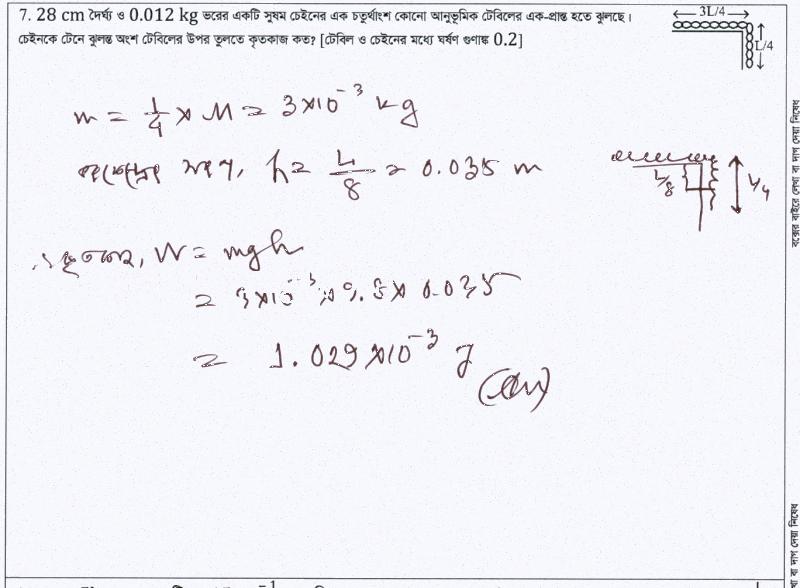 7. 28 cm দৈর্ঘ্য ও 0.012 kg ভরের একটি সুষম চেইনের এক চতুর্থাংশ কোনো আনুভূমিক টেবিলের এক-প্রান্ত হতে ঝুলছে।
চেইনকে টেনে ঝুলন্ত অংশ টেবিলের উপর তুলতে কৃতকাজ কত? [টেবিল ও চেইনের মধ্যে ঘর্ষণ গুণাঙ্ক 0.2]
3L/4
L/4
m = 1/4 × M = 3×10⁻³ kg
সরণ, h = L/8 = 0.035 m
L/8
L/4
কৃতকাজ, W = mgh
= 3×10⁻³ × 9.8 × 0.035
= 1.029×10⁻³ J
(Ans)
বক্সের বাইরে লেখা বা দাগ দেয়া নিষেধ
বা দাগ দেয়া নিষেধ